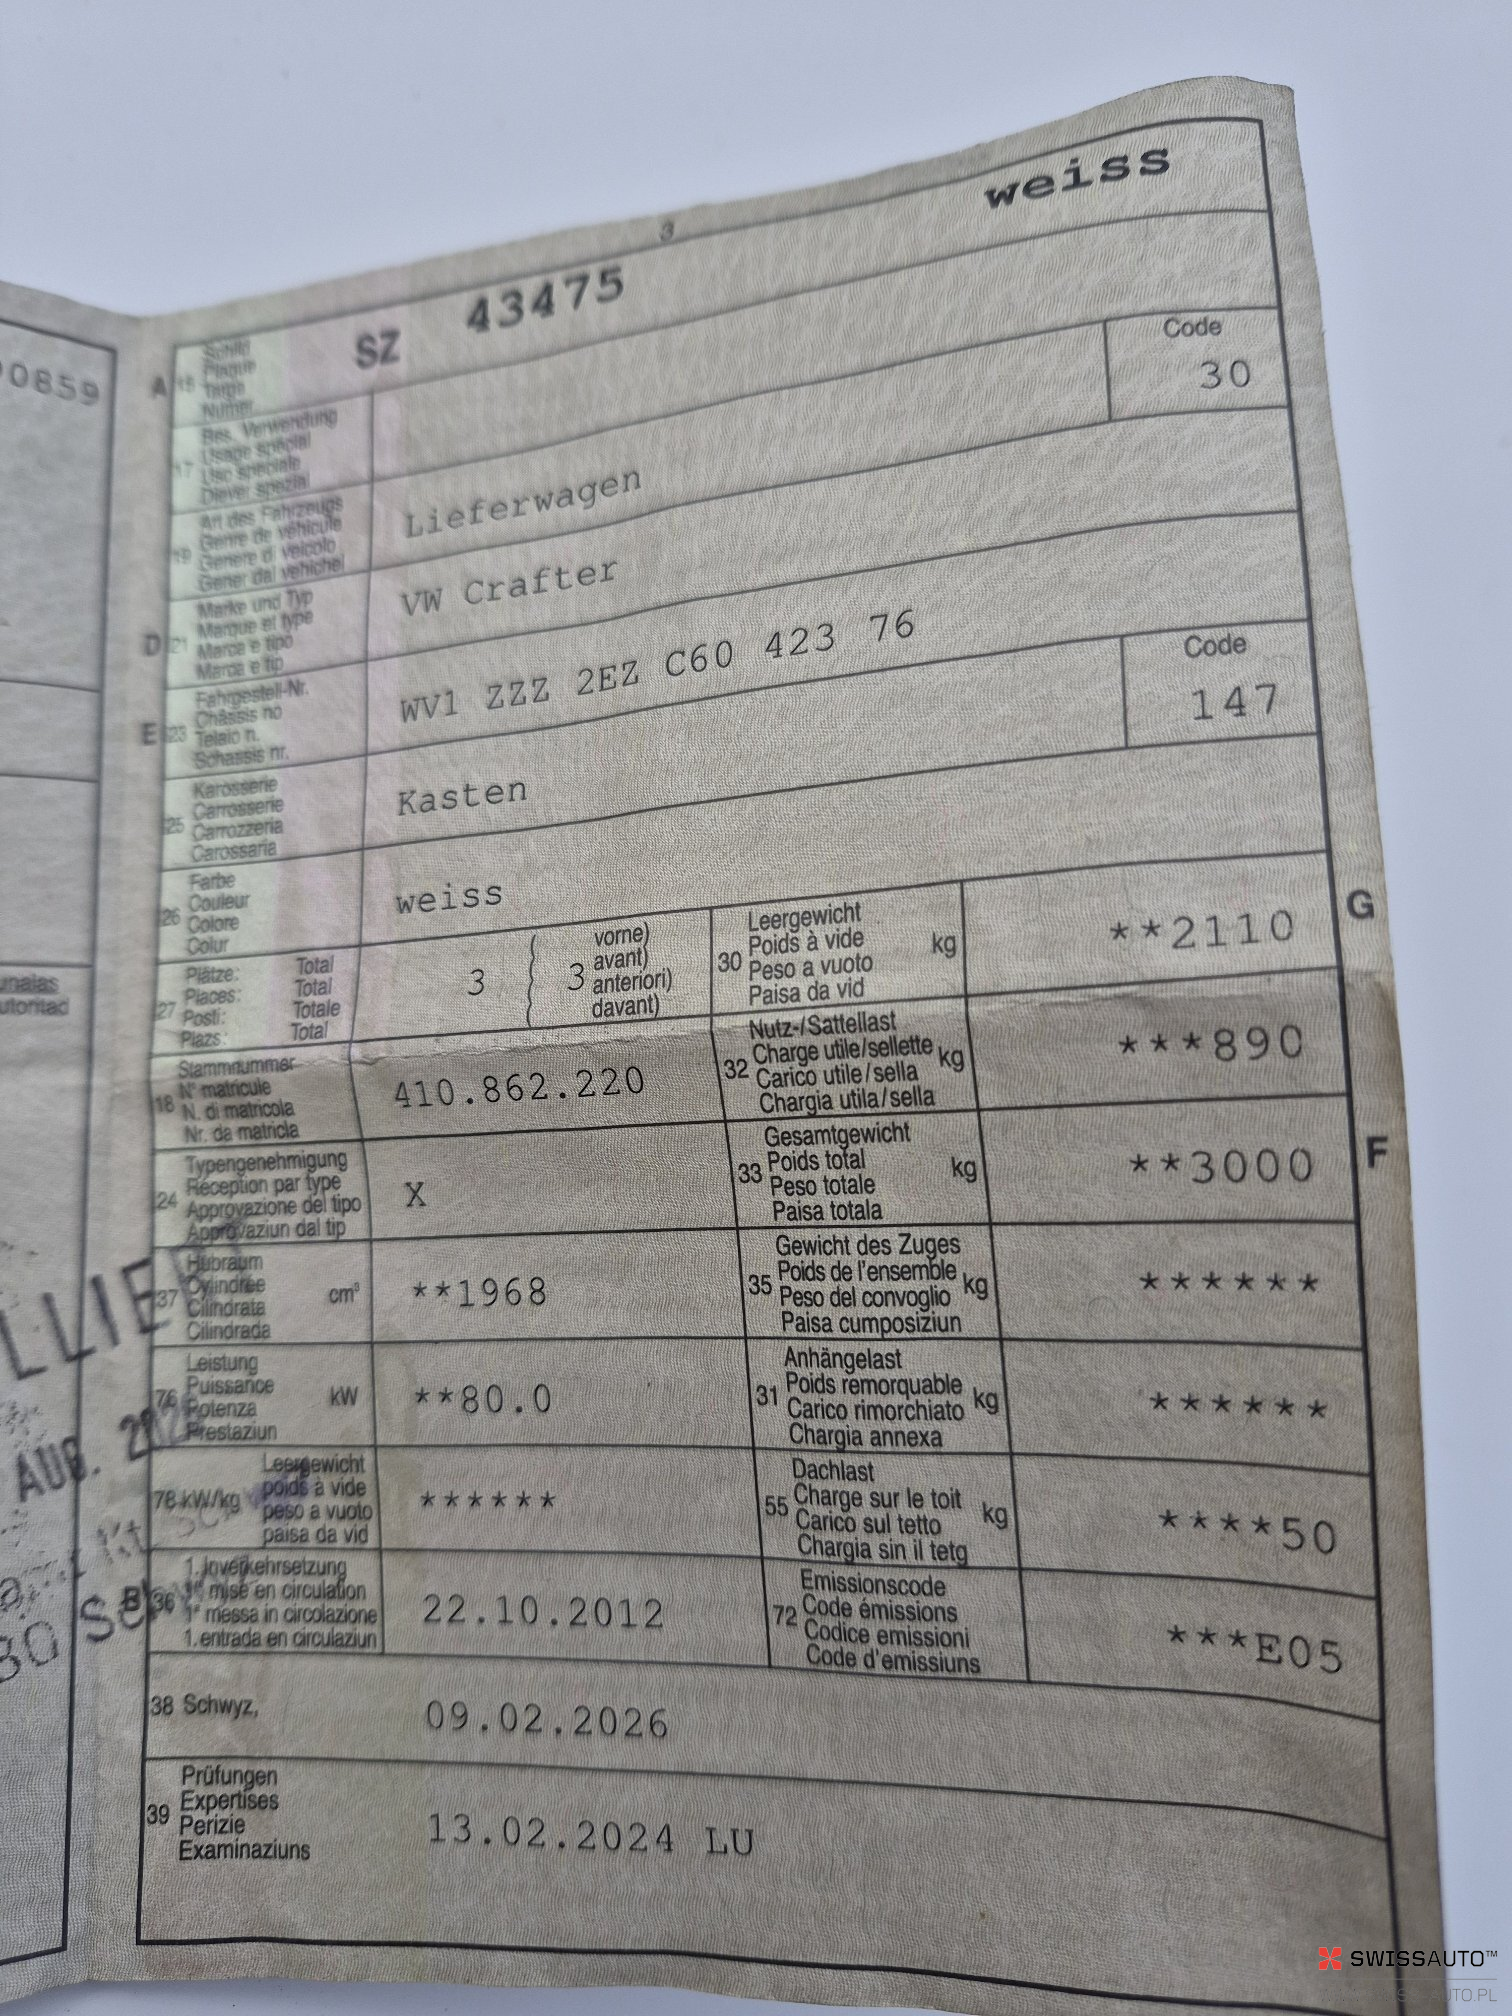 00859
3
SZ 43475 weiss
A 15 Schild
Plaque
Targa
Numer
17 Bes. Verwendung
Usage spécial
Uso speciale
Diever spezial
19 Art des Fahrzeugs
Genre de véhicule
Genere di veicolo
Gener dal vehichel
Lieferwagen
Code
30
D 21 Marke und Typ
Marque et type
Marca e tipo
Marca e tip
VW Crafter
E 23 Fahrgestell-Nr.
Châssis no
Telaio n.
Schassis nr.
WV1 ZZZ 2EZ C60 423 76
25 Karosserie
Carrosserie
Carrozzeria
Carossaria
Kasten
Code
147
26 Farbe
Couleur
Colore
Colur
weiss
27 Plätze: Total
Places: Total
Posti: Totale
Plazs: Total
3 ( 3 vorne)
avant)
anteriori)
davant)
30 Leergewicht
Poids à vide
Peso a vuoto
Paisa da vid
kg
**2110
G
18 Stammnummer
N° matricule
N. di matricola
Nr. da matricla
410.862.220
32 Nutz-/Sattellast
Charge utile/sellette
Carico utile/sella
Chargia utila/sella
kg
***890
24 Typengenehmigung
Réception par type
Approvazione del tipo
Approvaziun dal tip
X
33 Gesamtgewicht
Poids total
Peso totale
Paisa totala
kg
**3000
F
37 Hubraum
Cylindrée
Cilindrata
Cilindrada
cm³
**1968
35 Gewicht des Zuges
Poids de l'ensemble
Peso del convoglio
Paisa cumposiziun
kg
******
76 Leistung
Puissance
Potenza
Prestaziun
kW
**80.0
31 Anhängelast
Poids remorquable
Carico rimorchiato
Chargia annexa
kg
******
78 kW/kg Leergewicht
poids à vide
peso a vuoto
paisa da vid
******
55 Dachlast
Charge sur le toit
Carico sul tetto
Chargia sin il tetg
kg
****50
B 36 1. Inverkehrsetzung
1re mise en circulation
1a messa in circolazione
1. entrada en circulaziun
22.10.2012
72 Emissionscode
Code émissions
Codice emissioni
Code d'emissiuns
***E05
38 Schwyz,
09.02.2026
39 Prüfungen
Expertises
Perizie
Examinaziuns
13.02.2024 LU
AUG.
SWISSAUTO™